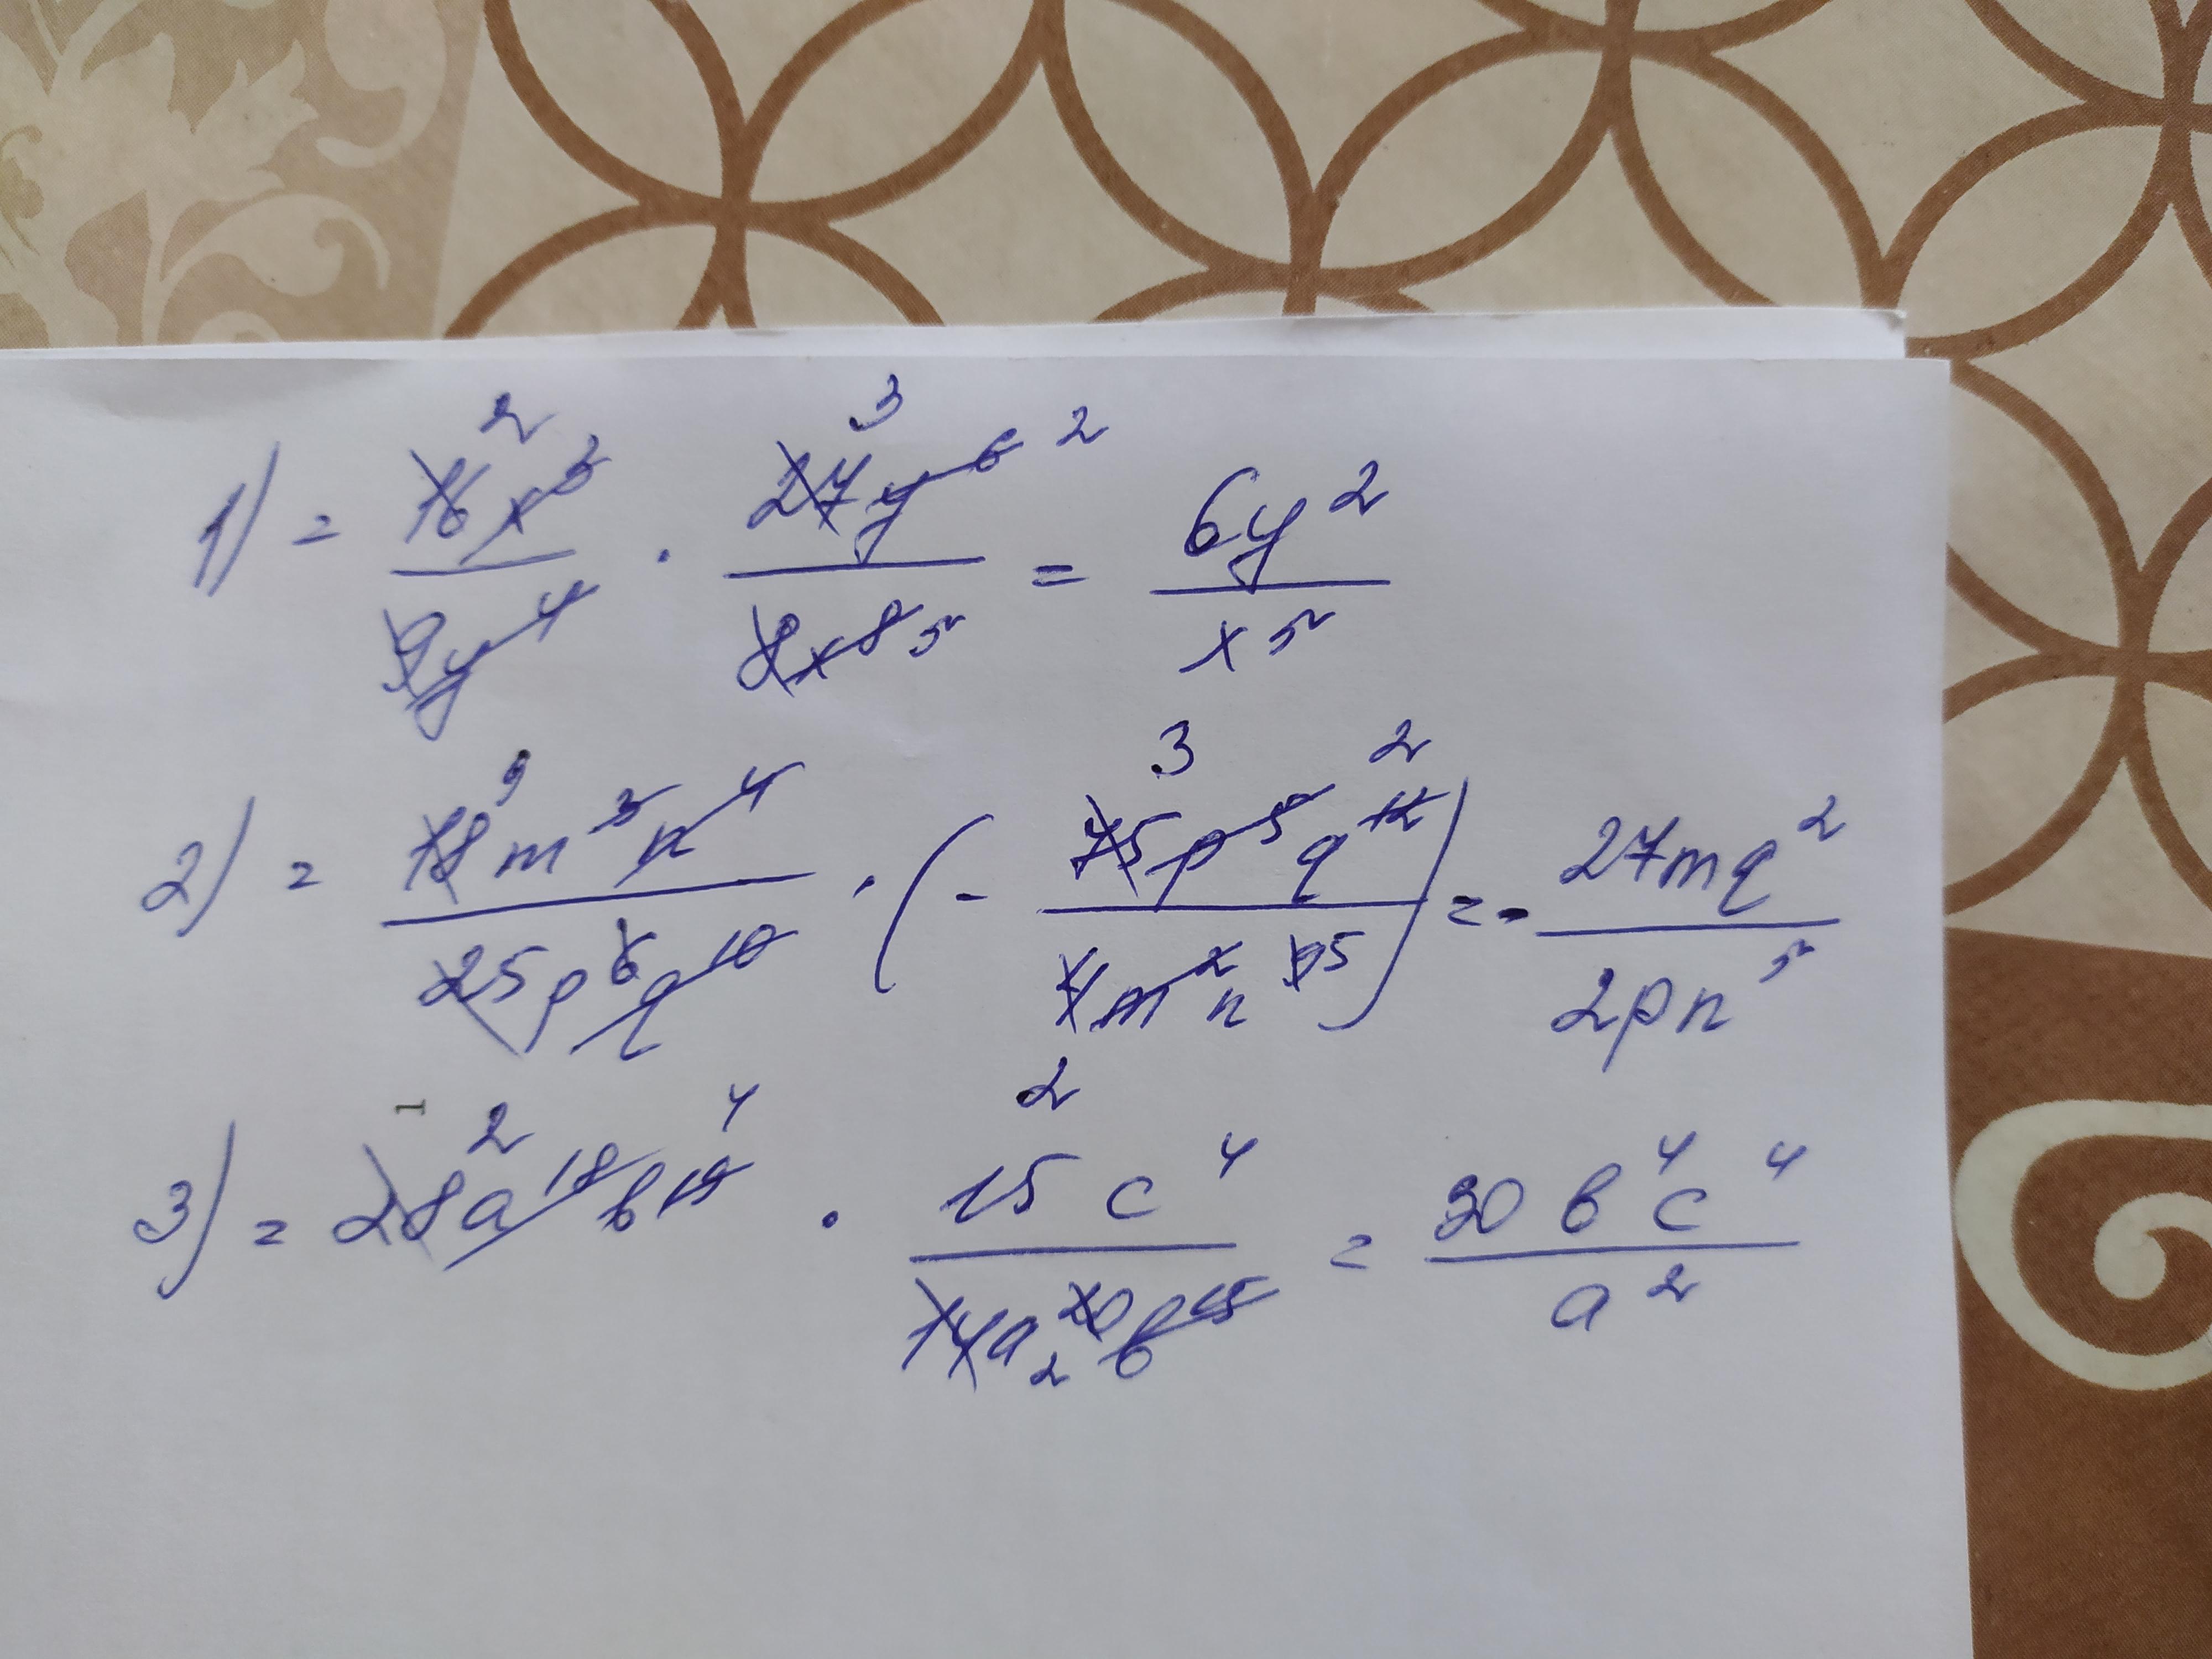 1) = 16x³/9y⁴ · 27y⁶/8x⁸ = 6y²/x⁵
2) = 18m³n⁴/25p⁶q¹⁰ · (- 75p⁵q¹²/4m²n⁹) = - 27mq²/2pn⁵
3) = 28a¹⁸b¹⁹ · 15c⁴/14a²⁰b¹⁵ = 30b⁴c⁴/a²